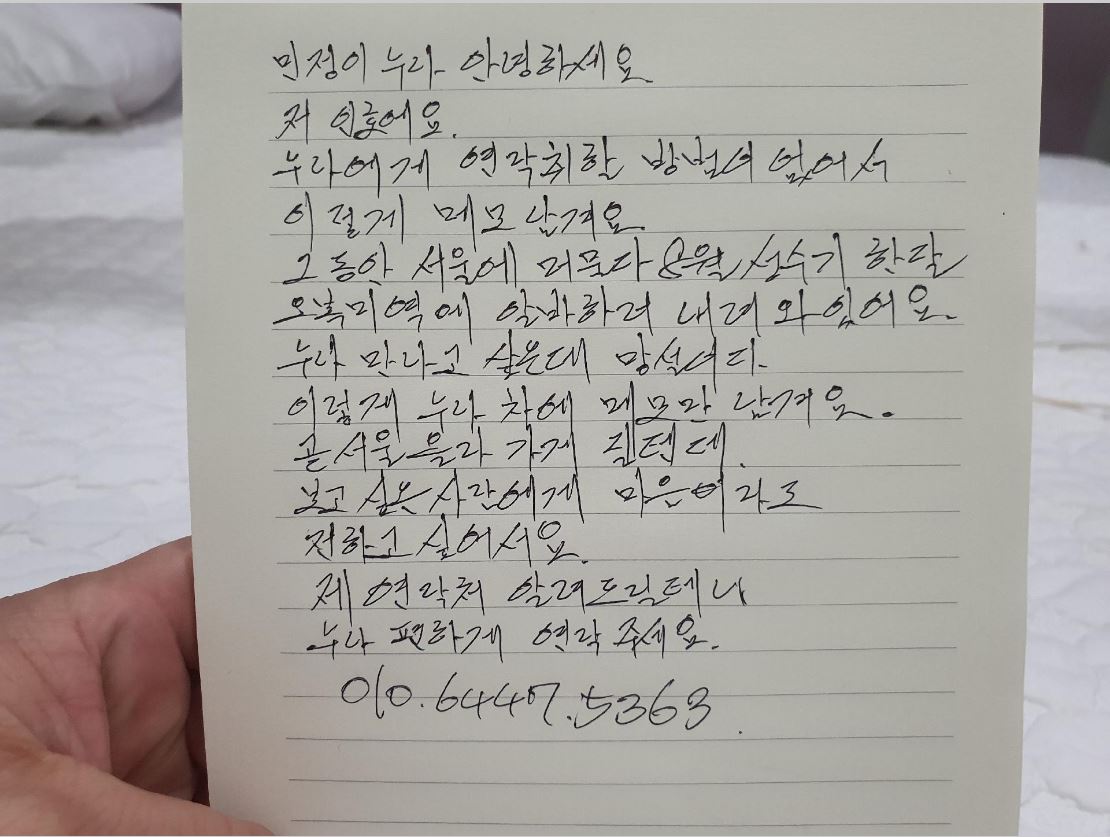 민정이 누나 안녕하세요
저 인호에요.
누나에게 연락취할 방법이 없어서
이렇게 메모 남겨요.
그동안 서울에 머물다 8월 성수기 한달
오복미역에 알바하러 내려 와 있어요.
누나 만나고 싶은대 망설이다.
이렇게 누나 차에 메모만 남겨요.
곧 서울 올라 가게 될텐데.
보고 싶은 사람에게 마음이라도
전하고 싶어서요.
제 연락처 알려드릴테니
누나 편하게 연락 주세요.
010.6447.5363